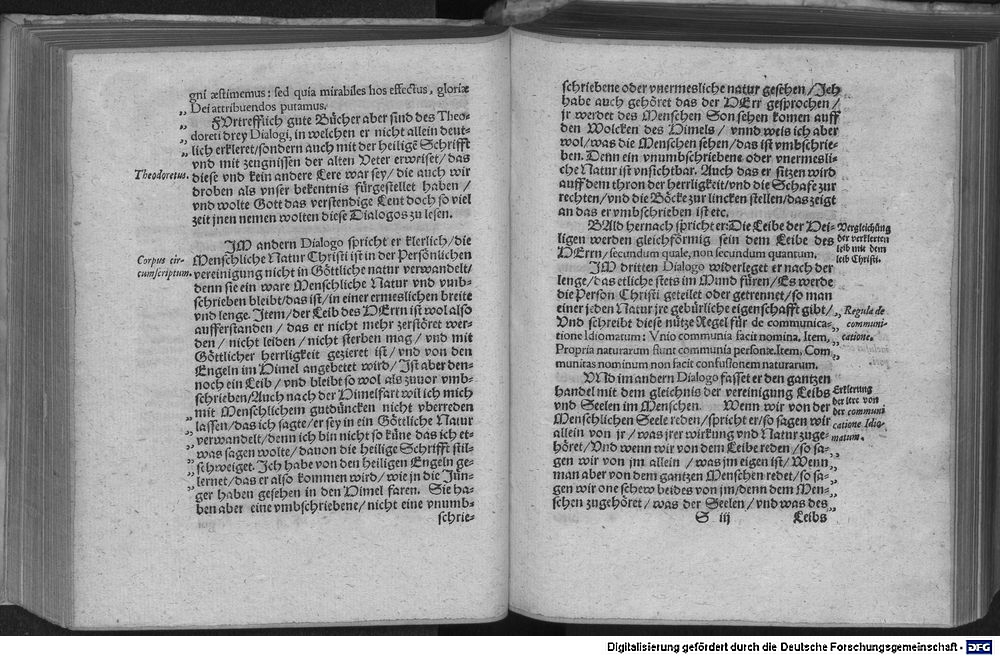 gni æstimemus: sed quia mirabiles hos effectus, gloriæ
Dei attribuendos putamus.
FVrtrefflich gute Bücher aber sind des Theo-
doreti drey Dialogi, in welchen er nicht allein deut-
lich erkleret/sondern auch mit der heiligē Schrifft
vnd mit zeugnissen der alten Veter erweiset/das
Theodoretus.
diese vnd kein andere Lere war sey/die auch wir
droben als vnser bekentnis fürgestellet haben/
vnd wolte Gott das verstendige Leut doch so viel
zeit jnen nemen wolten diese Dialogos zu lesen.
JM andern Dialogo spricht er klerlich/die
Corpus cir-
cumscriptum.
Menschliche Natur Christi ist in der Persönlichen
vereinigung nicht in Göttliche natur verwandelt/
denn sie ein ware Menschliche Natur vnd vmb-
schrieben bleibt/das ist/in einer ermeslichen breite
vnd lenge. Item/der Leib des HErrn ist wol also
aufferstanden/das er nicht mehr zerstöret wer-
den/nicht leiden/nicht sterben mag/vnd mit
Göttlicher herrligkeit gezieret ist/vnd von den
Engeln im Himel angebetet wird/Ist aber den-
noch ein Leib/vnd bleibt so wol als zuuor vmb-
schrieben/Auch nach der Himelfart wil ich mich
mit Menschlichem gutdüncken nicht vberreden
lassen/das ich sagte/er sey in ein Göttliche Natur
verwandelt/denn ich bin nicht so küne das ich et-
was sagen wolte/dauon die heilige Schrifft stil-
schweiget. Ich habe von den heiligen Engeln ge-
lernet/das er also kommen wird/wie jn die Jün-
ger haben gesehen in den Himel faren. Sie ha-
ben aber eine vmbschriebene/nicht eine vnumb-
schrie-
schriebene oder vnermesliche natur gesehen/Jch
habe auch gehöret das der HErr gesprochen/
jr werdet des Menschen Son sehen komen auff
den Wolcken des Himels/vnnd weis ich aber
wol/was die Menschen sehen/das ist vmbschrie-
ben. Denn ein vnumbschriebene oder vnermesli-
che Natur ist vnsichtbar. Auch das er sitzen wird
auff dem thron der herrligkeit/vnd die Schafe zur
rechten/vnd die Böcke zur lincken stellen/das zeigt
an das er vmbschrieben ist etc.
BAld hernach spricht er: Die Leibe der Hei-
ligen werden gleichförmig sein dem Leibe des
HErrn/secundum quale, non secundum quantum.
Vergleichūg
der verklerten
leib mit dem
leib Christi.
JM dritten Dialogo widerleget er nach der
lenge/das etliche stets im Mund füren/Es werde
die Person Christi geteilet oder getrennet/so man
einer jeden Natur jre gebürliche eigenschafft gibt/
Vnd schreibt diese nütze Regel für de communica-
tione Idiomatum: Vnio communia facit nomina. Item,
Propria naturarum fiunt communia personæ. Item, Com-
munitas nominum non facit confusionem naturarum.
Regula de
communi-
catione.
VNd im andern Dialogo fasset er den gantzen
handel mit dem gleichnis der vereinigung Leibs
vnd Seelen im Menschen. Wenn wir von der
Menschlichen Seele reden/spricht er/so sagen wir
allein von jr/was jrer wirkung vnd Natur zuge-
höret/Vnd wenn wir von dem Leibe reden/so sa-
gen wir von jm allein/was jm eigen ist/Wenn
man aber von dem gantzen Menschen redet/so sa-
gen wir one schew beides von jm/denn dem Men-
schen zugehöret/was der Seelen/vnd was des
Erklerung
der lere von
der communi
catione Idio-
matum.
S iij
Leibs
Digitalisierung gefördert durch die Deutsche Forschungsgemeinschaft - DFG